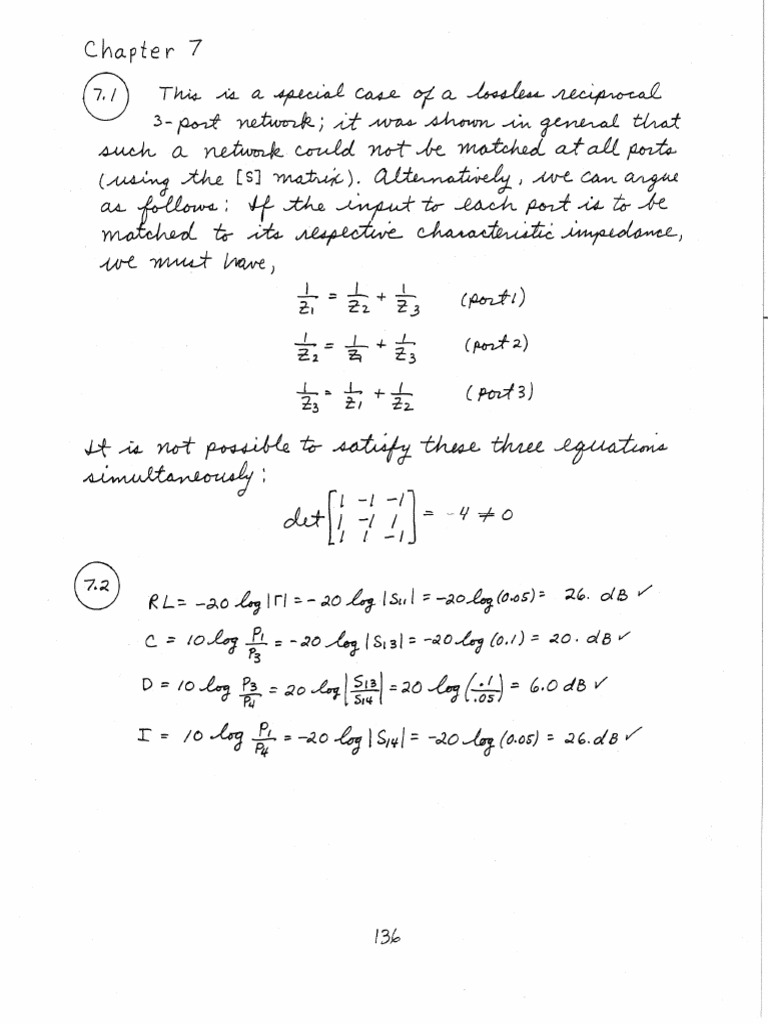 Chapter 7
7.1 This is a special case of a lossless reciprocal
3-port network; it was shown in general that
such a network could not be matched at all ports
(using the [S] matrix). Alternatively, we can argue
as follows: If the input to each port is to be
matched to its respective characteristic impedance,
we must have,
1/Z₁ = 1/Z₂ + 1/Z₃ (port 1)
1/Z₂ = 1/Z₁ + 1/Z₃ (port 2)
1/Z₃ = 1/Z₁ + 1/Z₂ (port 3)
It is not possible to satisfy these three equations
simultaneously:
det [1 -1 -1; 1 -1 1; 1 1 -1] = -4 ≠ 0
7.2 RL = -20 log |Γ| = -20 log |S₁₁| = -20 log (0.05) = 26. dB ✓
C = 10 log P₁/P₃ = -20 log |S₁₃| = -20 log (0.1) = 20. dB ✓
D = 10 log P₃/P₄ = 20 log |S₁₃/S₁₄| = 20 log (.1/.05) = 6.0 dB ✓
I = 10 log P₁/P₄ = -20 log |S₁₄| = -20 log (0.05) = 26. dB ✓
136